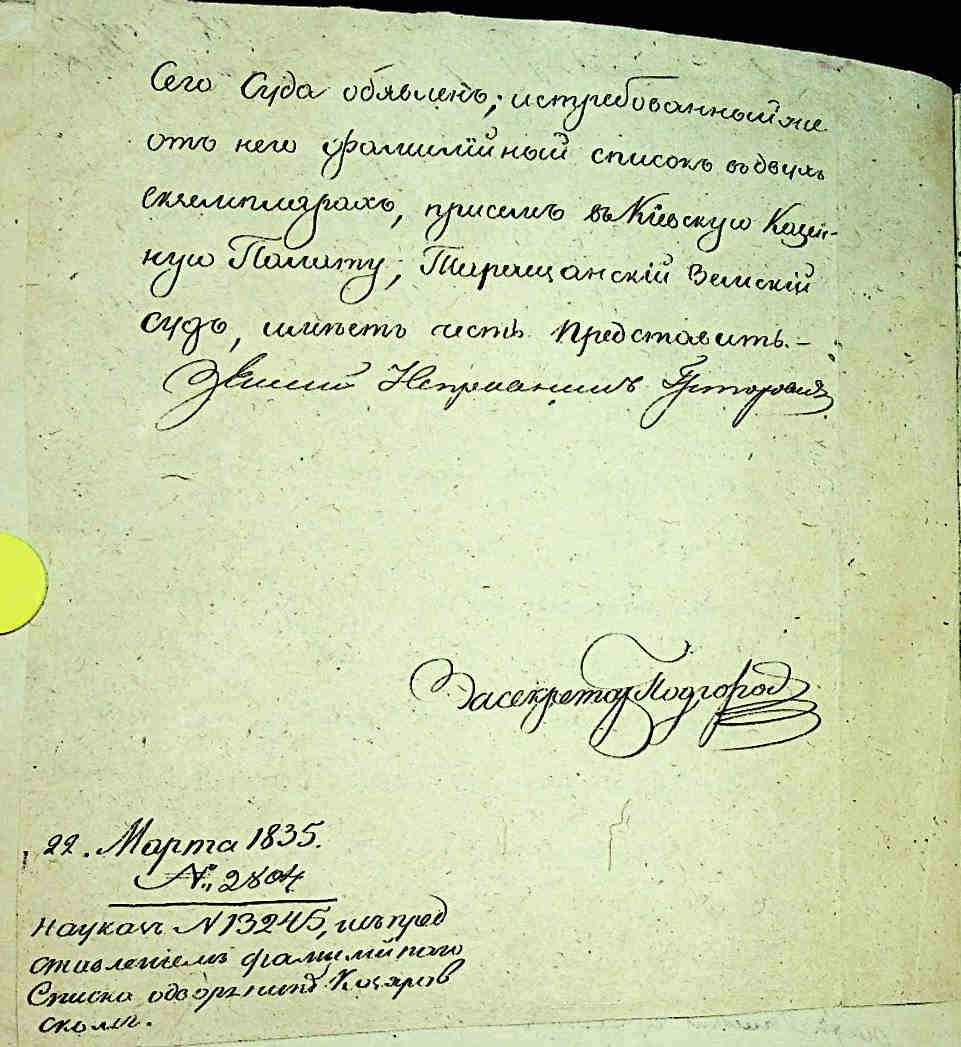 Сего Суда объявленъ, истребованный же
отъ него фамилійный списокъ въ двухъ
екземплярахъ, при семъ въ Кіевскую Казен-
ную Палату, Таращанскій Земскій
судъ, имѣетъ честь представить.-
Непремѣнный
За секретар Подгород
22. Марта 1835.
№ 2804
На указъ N 13245, съ пред
ставленіемъ фамилійнаго
Списка о дворянинѣ Коцяров
скомъ.